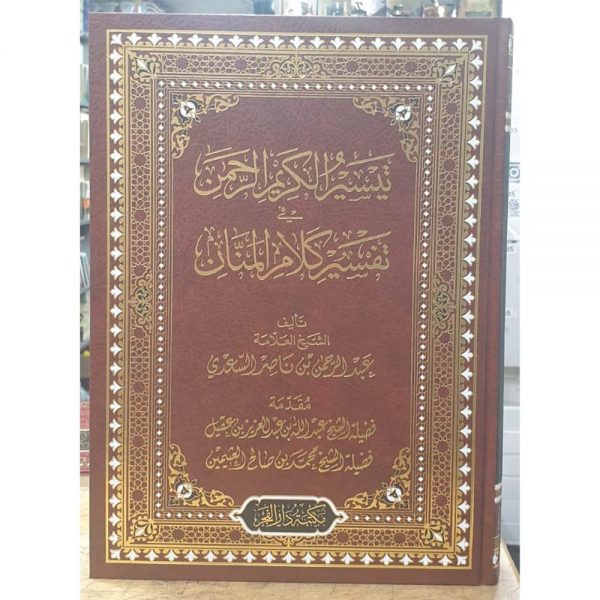 تيسير الكريم الرحمن
في
تفسير كلام المنان
تأليف
الشيخ العلامة
عبد الرحمن بن ناصر السعدي
مقدمة
فضيلة الشيخ عبد الله بن عبد العزيز بن عقيل
فضيلة الشيخ محمد بن صالح العثيمين
مكتبة دار الفجر